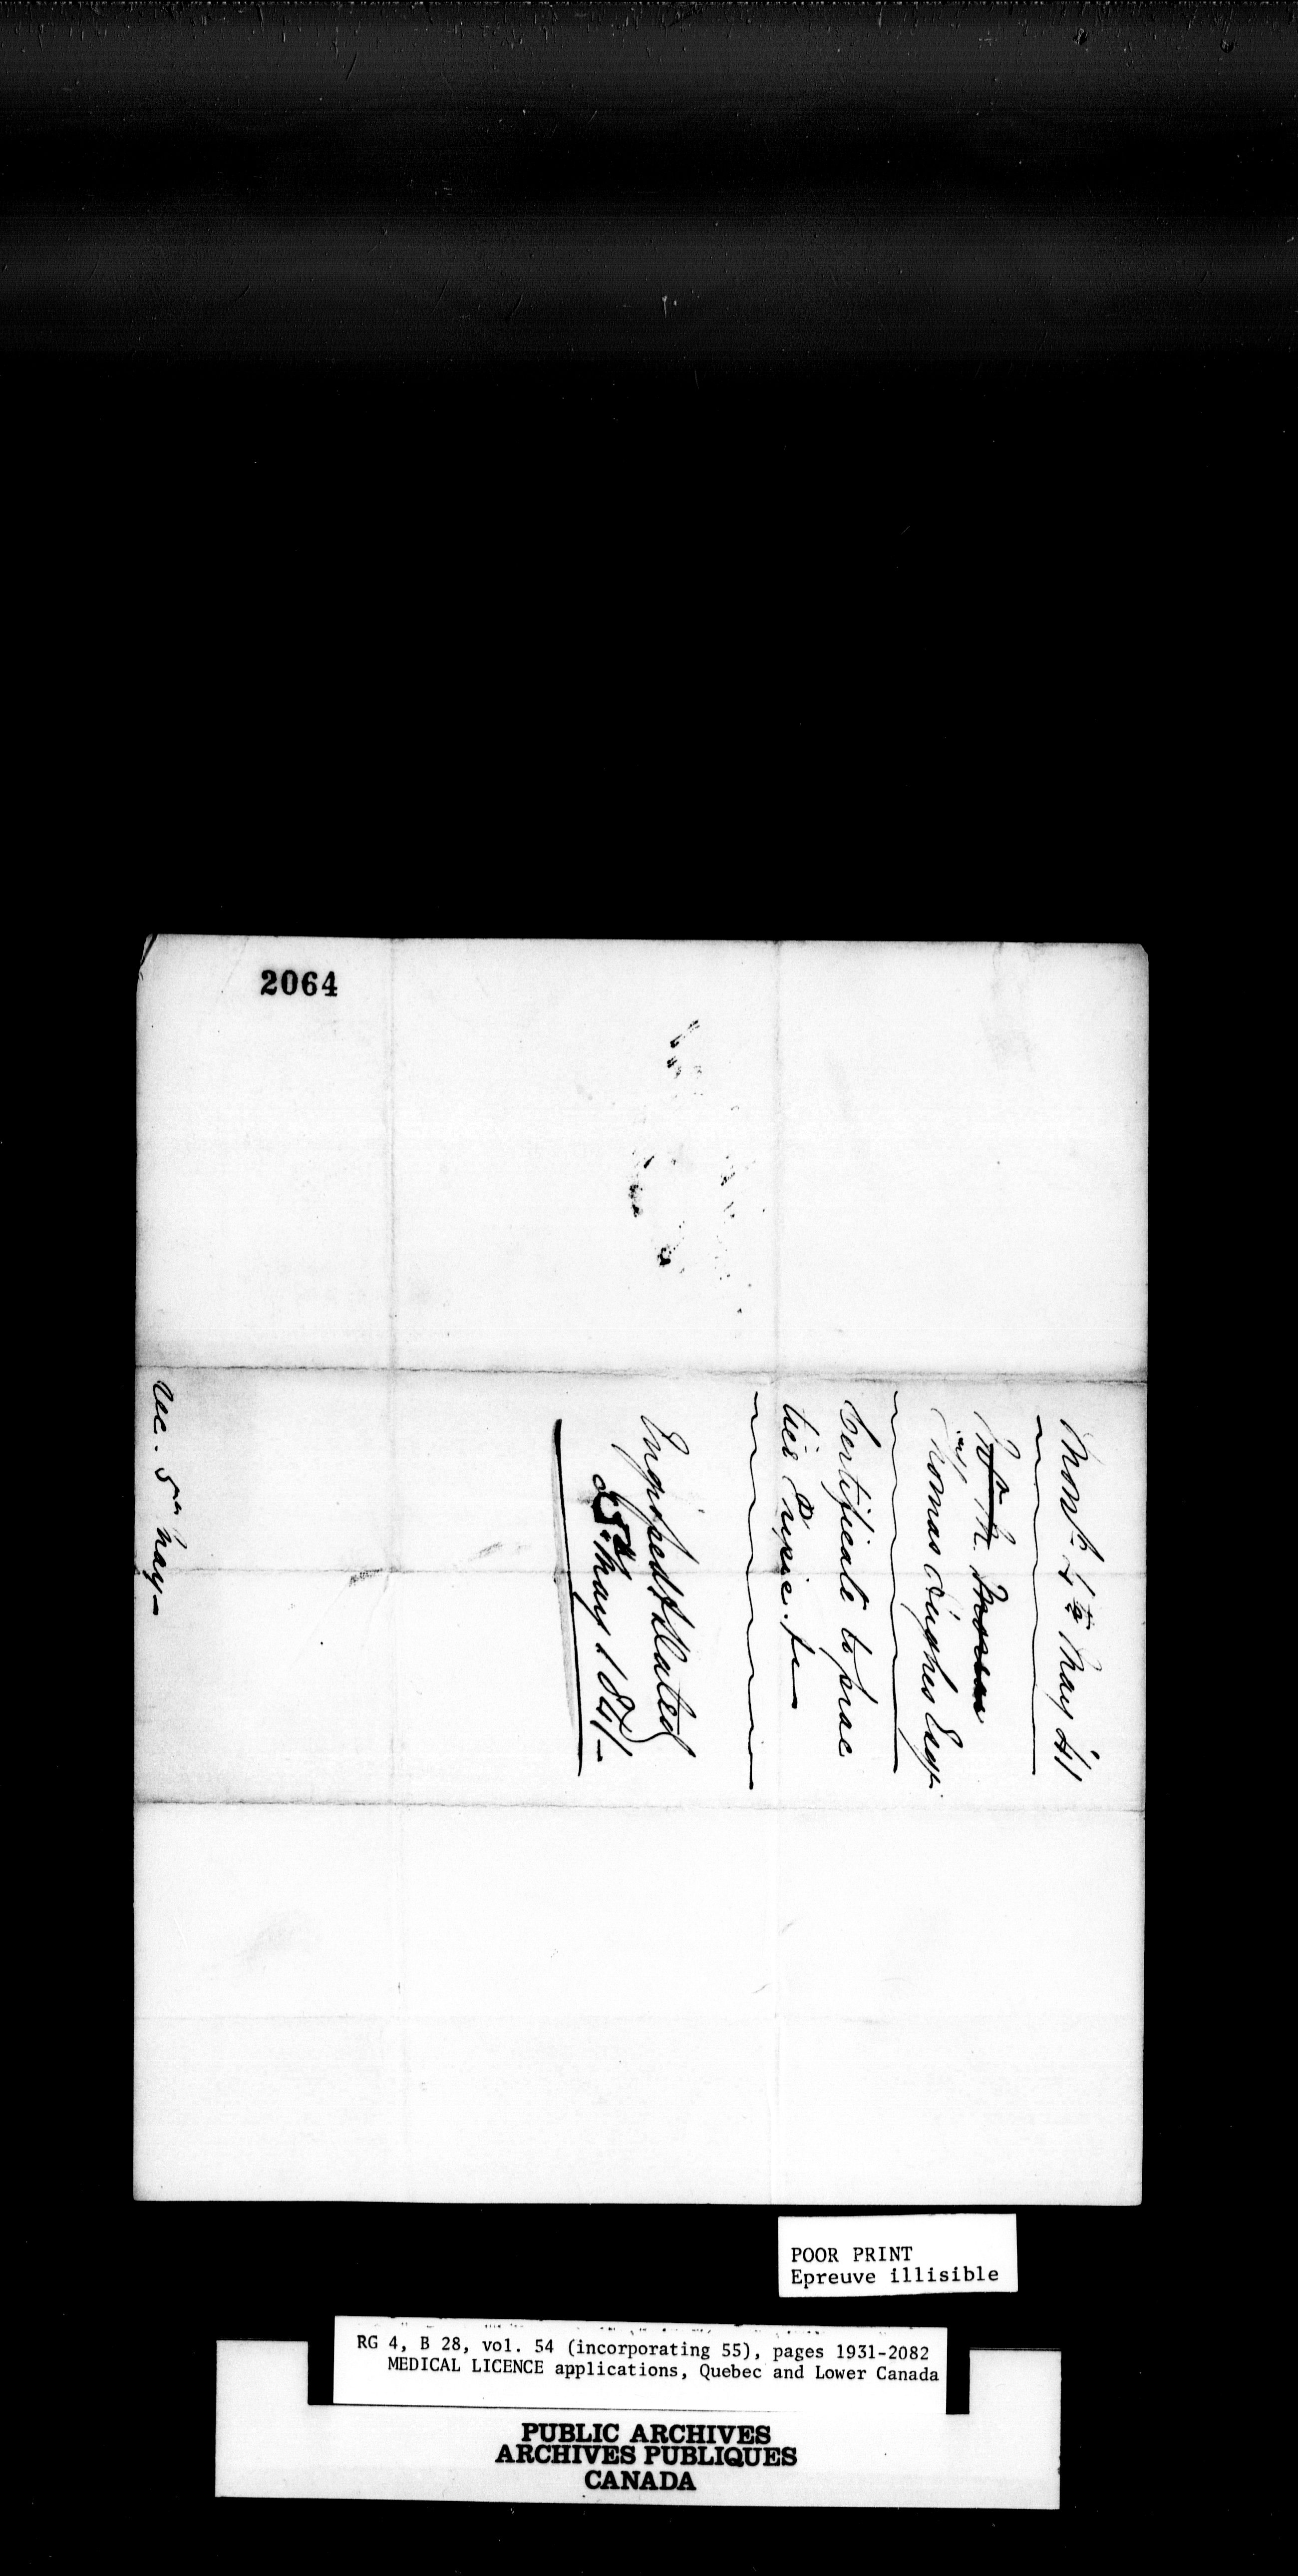 2064
Mont. 4th May 41
Thomas Hughes Esqr.
Certificate to prac
tice
Engrossed & dated
5th May 1841-
Rec. 5th May-
POOR PRINT
Epreuve illisible
RG 4, B 28, vol. 54 (incorporating 55), pages 1931-2082
MEDICAL LICENCE applications, Quebec and Lower Canada
PUBLIC ARCHIVES
ARCHIVES PUBLIQUES
CANADA